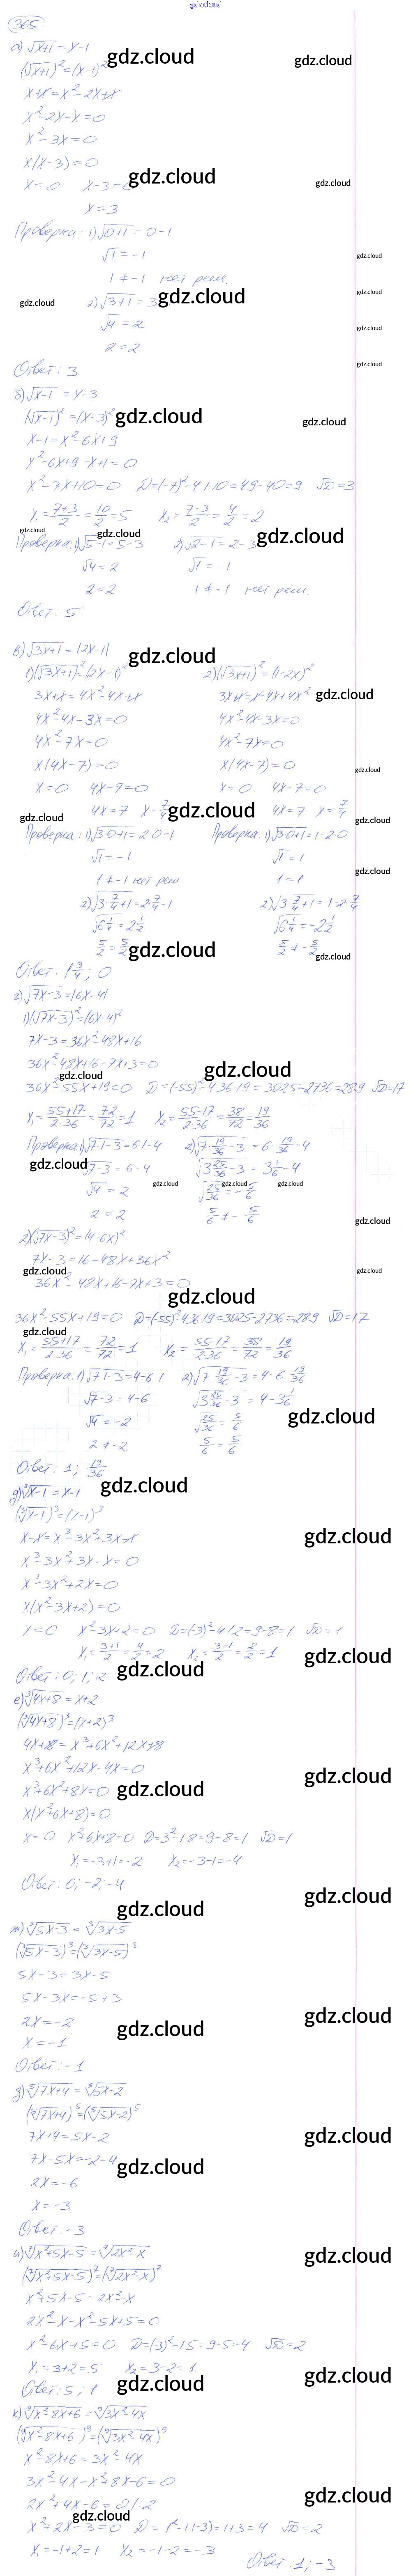 gdz.cloud
365
а) √x+1 = x-1
(√x+1)² = (x-1)²
x+1 = x²-2x+1
x²-2x-x=0
x²-3x=0
x(x-3)=0
x=0 x-3=0
x=3
Проверка: 1) √0+1 = 0-1
√1 = -1
1 ≠ -1 нет реш.
2) √3+1 = 3
√4 = 2
2=2
Ответ: 3
б) √x-1 = x-3
(√x-1)² = (x-3)²
x-1 = x²-6x+9
x²-6x+9-x+1=0
x²-7x+10=0 D=(-7)²-4·1·10=49-40=9 √D=3
x₁ = 7+3/2 = 10/2 = 5 x₂ = 7-3/2 = 4/2 = 2
Проверка: 1) √5-1=5-3 2) √2-1 = 2-3
√4 = 2 √1 = -1
2=2 1 ≠ -1 нет реш.
Ответ: 5
в) √3x+1 = |2x-1|
1) (√3x+1)²=(2x-1)² 2) (√3x+1)²=(1-2x)²
3x+1=4x²-4x+1 3x+1=1-4x+4x²
4x²-4x-3x=0 4x²-4x-3x=0
4x²-7x=0 4x²-7x=0
x(4x-7)=0 x(4x-7)=0
x=0 4x-7=0 x=0 4x-7=0
4x=7 x=7/4 4x=7 x=7/4
Проверка: 1) √3·0+1=2·0-1 Проверка: 1) √3·0+1=1-2·0
√1 = -1 √1 = 1
1 ≠ -1 нет реш 1=1
2) √3·7/4+1=2·7/4-1 2) √3·7/4+1=1-2·7/4
√6 1/4=2 1/2 √6 1/4=-2 1/2
5/2=5/2 5/2 ≠ -5/2
Ответ: 1 3/4; 0
г) √7x-3=|6x-4|
1) (√7x-3)²=(6x-4)²
7x-3=36x²-48x+16
36x²-48x+16-7x+3=0
36x²-55x+19=0 D=(-55)²-4·36·19=3025-2736=289 √D=17
x₁=55+17/2·36=72/72=1 x₂=55-17/2·36=38/72=19/36
Проверка: 1) √7·1-3=6·1-4 2) √7·19/36-3=6·19/36-4
√7-3=6-4 √3 25/36-3=3 1/6-4
√4=2 √25/36=-5/6
2=2 5/6 ≠ -5/6
2) (√7x-3)²=(4-6x)²
7x-3=16-48x+36x²
36x²-48x+16-7x+3=0
36x²-55x+19=0 D=(-55)²-4·36·19=3025-2736=289 √D=17
x₁=55+17/2·36=72/72=1 x₂=55-17/2·36=38/72=19/36
Проверка: 1) √7·1-3=4-6·1 2) √7·19/36-3=4-6·19/36
√7-3=4-6 √3 25/36-3=4-3 1/6
√4=-2 √25/36=5/6
2 ≠ -2 5/6=5/6
Ответ: 1; 19/36
д) ³√x-1=x-1
(³√x-1)³=(x-1)³
x-1=x³-3x²+3x-1
x³-3x²+3x-x=0
x³-3x²+2x=0
x(x²-3x+2)=0
x=0 x²-3x+2=0 D=(-3)²-4·1·2=9-8=1 √D=1
x₁=3+1/2=4/2=2 x₂=3-1/2=2/2=1
Ответ: 0; 1; 2
е) ³√4x+8=x+2
(³√4x+8)³=(x+2)³
4x+8=x³+6x²+12x+8
x³+6x²+12x-4x=0
x³+6x²+8x=0
x(x²+6x+8)=0
x=0 x²+6x+8=0 D=3²-1·8=9-8=1 √D=1
x₁=-3+1=-2 x₂=-3-1=-4
Ответ: 0; -2; -4
ж) ³√5x-3=³√3x-5
(³√5x-3)³=(³√3x-5)³
5x-3=3x-5
5x-3x=-5+3
2x=-2
x=-1
Ответ: -1
з) ⁵√7x+4=⁵√5x-2
(⁵√7x+4)⁵=(⁵√5x-2)⁵
7x+4=5x-2
7x-5x=-2-4
2x=-6
x=-3
Ответ: -3
и) ⁷√x²+5x-5=⁷√2x²-x
(⁷√x²+5x-5)⁷=(⁷√2x²-x)⁷
x²+5x-5=2x²-x
2x²-x-x²-5x+5=0
x²-6x+5=0 D=(-3)²-1·5=9-5=4 √D=2
x₁=3+2=5 x₂=3-2=1
Ответ: 5; 1
к) ⁹√x²-8x+6=⁹√3x²-4x
(⁹√x²-8x+6)⁹=(⁹√3x²-4x)⁹
x²-8x+6=3x²-4x
3x²-4x-x²+8x-6=0
2x²+4x-6=0 /:2
x²+2x-3=0 D=1²-1·(-3)=1+3=4 √D=2
x₁=-1+2=1 x₂=-1-2=-3
Ответ: 1; -3